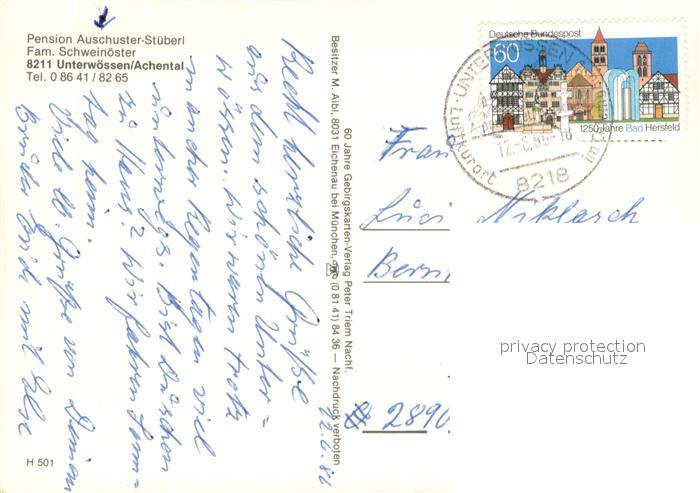 Pension Auschuster-Stüberl
Fam. Schweinöster
8211 Unterwössen/Achental
Tel. 0 86 41 / 82 65
22.6.86
Recht herzliche Grüße
aus dem schönen Unter=
wössen. Wir waren trotz
mancher Regentagen viel
unterwegs. Bist Du schon
zu Haus? Wir fahren Sonn=
tag heim.
Viele lb. Grüße von Deinem
Bruder Erich mit Else
H 501
Besitzer M. Aibl, 8031 Eichenau bei München, (0 81 41) 84 36 — Nachdruck verboten
60 Jahre Gebirgskarten-Verlag Peter Triem Nachf.
Deutsche Bundespost
60
1250 Jahre Bad Hersfeld
UNTERWÖSSEN
Luftkurort im
8218
Frau
Luci Miklasch
Bern
2890
privacy protection
Datenschutz